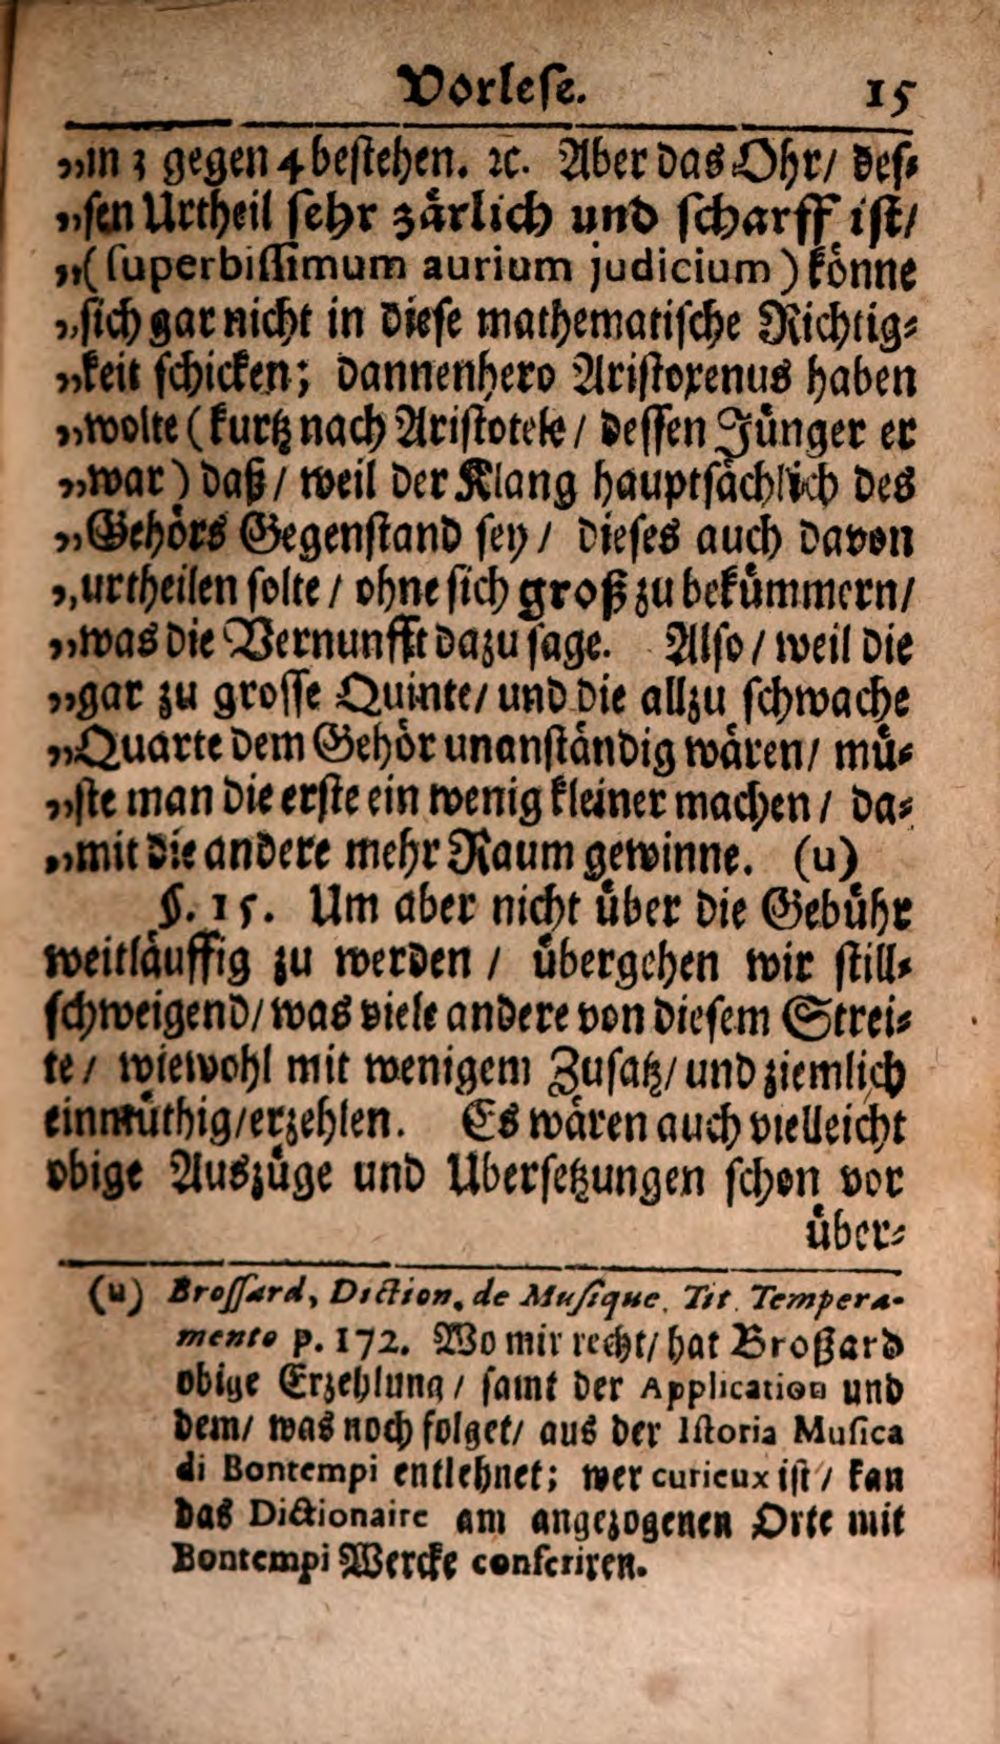 Vorlese. 15
„in 3 gegen 4 bestehen. ꝛc. Aber das Ohr/ des⸗
„sen Urtheil sehr zärlich und scharff ist/
„(superbissimum aurium judicium) könne
„sich gar nicht in diese mathematische Richtig⸗
„keit schicken; dannenhero Aristoxenus haben
„wolte (kurtz nach Aristotele / dessen Jünger er
„war) daß/ weil der Klang hauptsächlich des
„Gehörs Gegenstand sey / dieses auch davon
„urtheilen solte / ohne sich groß zu bekümmern/
„was die Vernunfft dazu sage. Also / weil die
„gar zu grosse Quinte/ und die allzu schwache
„Quarte dem Gehör unanständig wären/ mü⸗
„ste man die erste ein wenig kleiner machen / da⸗
„mit die andere mehr Raum gewinne. (u)
§. 15. Um aber nicht über die Gebühr
weitläuffig zu werden / übergehen wir still⸗
schweigend/ was viele andere von diesem Strei⸗
te / wiewohl mit wenigem Zusatz/ und ziemlich
einmüthig/ erzehlen. Es wären auch vielleicht
obige Auszüge und Ubersetzungen schon vor
über⸗
(u) Brossard, Diction. de Musique. Tit. Tempera-
mento p. 172. Wo mir recht/ hat Broßard
obige Erzehlung / samt der Application und
dem/ was noch folget/ aus der Istoria Musica
di Bontempi entlehnet; wer curieux ist / kan
das Dictionaire am angezogenen Orte mit
Bontempi Wercke conferiren.